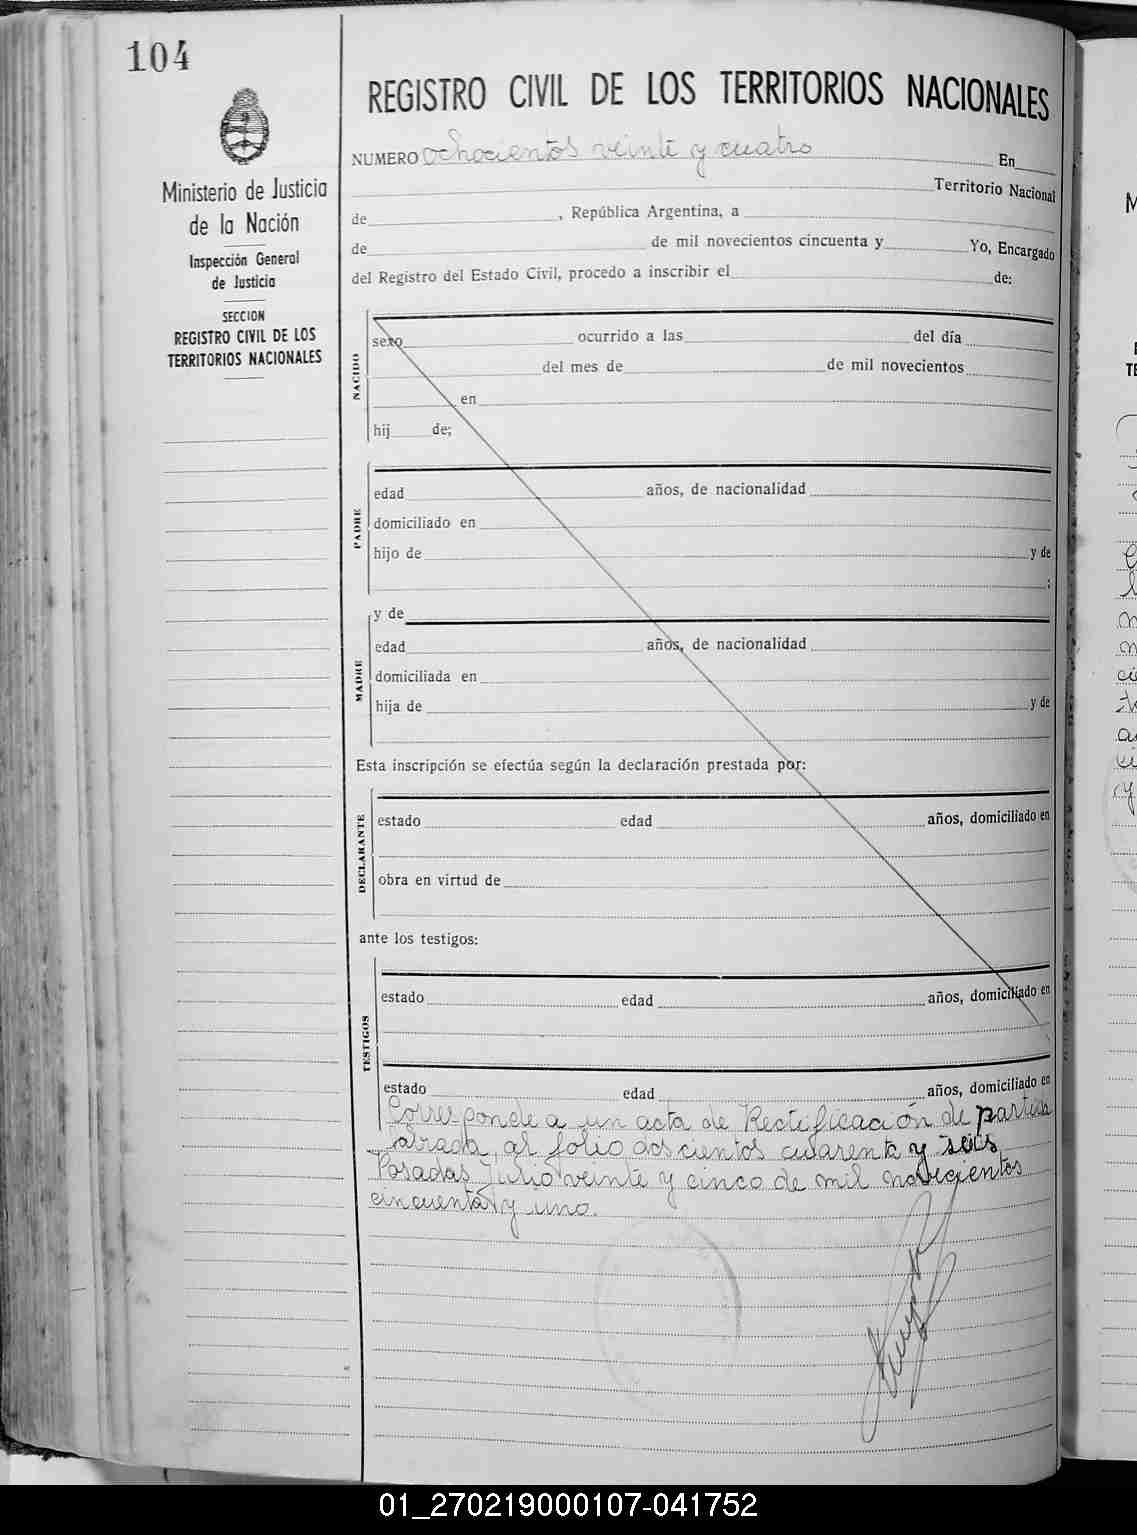 104
Ministerio de Justicia
de la Nación
Inspección General
de Justicia
SECCION
REGISTRO CIVIL DE LOS
TERRITORIOS NACIONALES
REGISTRO CIVIL DE LOS TERRITORIOS NACIONALES
NUMERO ochocientos veinte y cuatro En
Territorio Nacional
de , República Argentina, a
de de mil novecientos cincuenta y Yo, Encargado
del Registro del Estado Civil, procedo a inscribir el de:
NACIDO
sexo ocurrido a las del día
del mes de de mil novecientos
en
hij de;
PADRE
edad años, de nacionalidad
domiciliado en
hijo de y de
;
MADRE
y de
edad años, de nacionalidad
domiciliada en
hija de y de
Esta inscripción se efectúa según la declaración prestada por:
DECLARANTE
estado edad años, domiciliado en
obra en virtud de
ante los testigos:
TESTIGOS
estado edad años, domiciliado en
estado edad años, domiciliado en
Corresponde a un acta de Rectificación de partida
labrada, al folio doscientos cuarenta y seis
Posadas, Julio veinte y cinco de mil novecientos
cincuenta y uno.
01_270219000107-041752